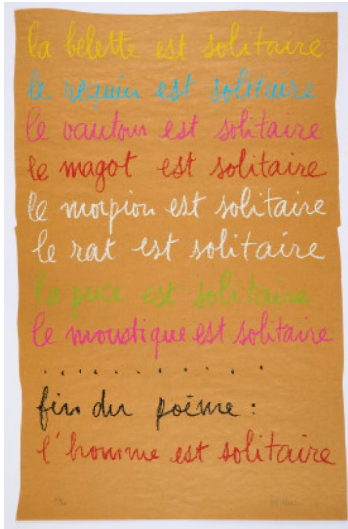 la belette est solitaire
le requin est solitaire
le vautour est solitaire
le magot est solitaire
le morpion est solitaire
le rat est solitaire
la puce est solitaire
le moustique est solitaire
. . . . . . . . . . . . . .
fin du poème :
l'homme est solitaire